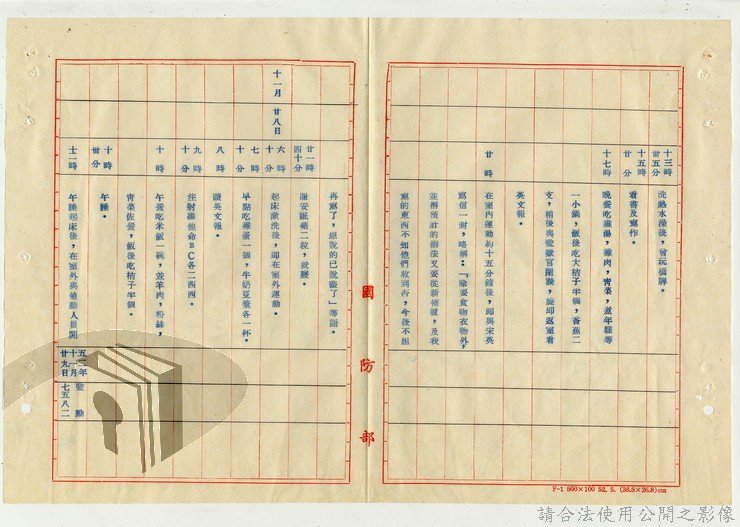 十三時卅五分
洗熱水澡後，曾玩橋牌。
十五時廿分
看書及寫作。
十七時
晚餐吃雞湯，雞肉，青菜，煮年糕等
一小鍋，飯後吃大桔子半個，香蕉二
支，稍後與監獄官閒談，旋即返室看
英文報。
廿時
在室內運動約十五分鐘後，即與宋英
寫信一封，略稱：「除要食物衣物外，
並稱預計的辦法又要從新佈置，及我
寫的東西不知他們收到否，今後不想
國防部
再寫了，想說的已說盡了」等語。
廿一時四十分
服安眠藥二粒，就寢。
十一月廿八日
六時十分
起床漱洗後，即在室外運動。
七時十分
早點吃雞蛋一個，牛奶豆漿各一杯。
八時
讀英文報。
九時十分
注射維他命BC各二西西。
十時
午餐吃米飯一碗，並羊肉，粉絲，
青菜佐餐，飯後吃桔子半個。
十時卅分
午睡。
十二時
午睡起床後，在室外與他勤人員閒
五三年十一月廿九日
七五八二
F-1 500×100 52. 5. (38.8×26.8)cm
請合法使用公開之影像